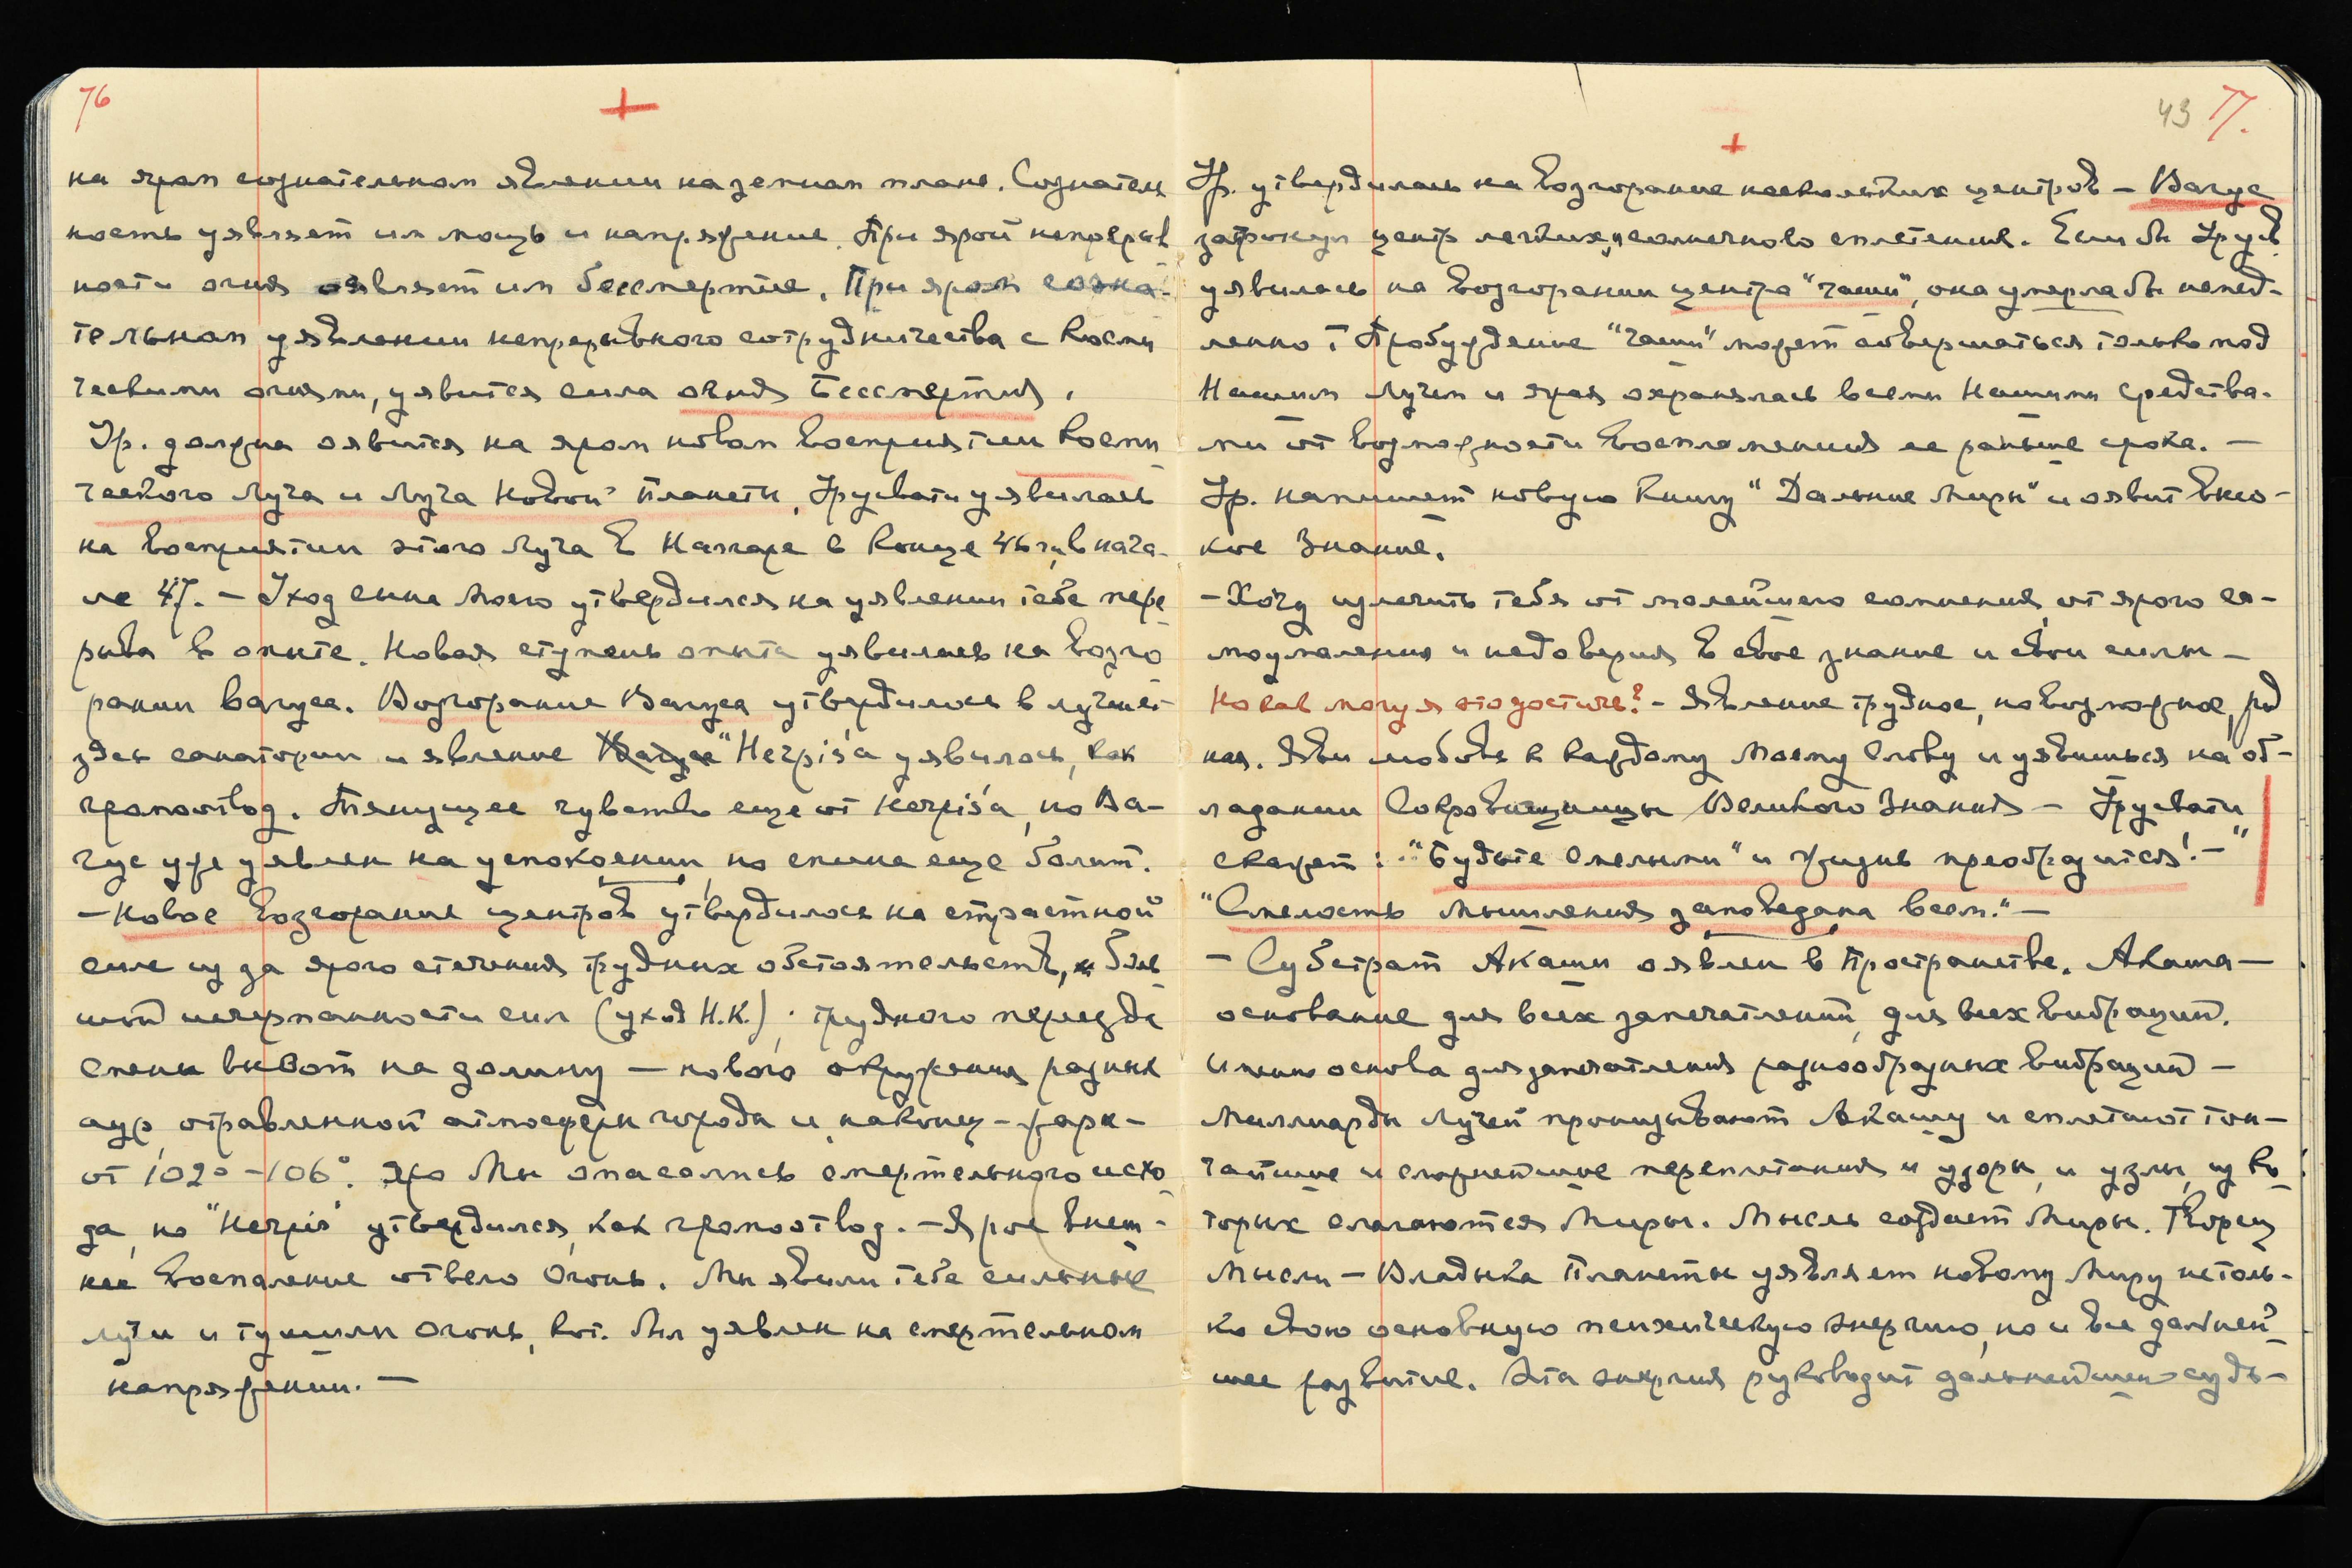 76
+
на яром сознательном явлении на земном плане. Сознатель
ность уявляет им мощь и напряжение. При ярой непрерыв
ности огня оявляет им бессмертие. При яром созна-
тельном уявлении непрерывного сотрудничества с косми
ческими огнями, уявится сила огня Бессмертия.
Ур. должна оявится на яром новом восприятии Косми
ческого Луча и Луча Новой Планеты, Урусвати уявилась
на восприятии этого Луча в Наггаре в конце 46 г. в нача-
ле 47. – Уход сына Моего утвердился на уявлении тебе пере
рыва в опыте. Новая ступень опыта уявилась на возго
рании вагуса. Возгорание Вагуса утвердилось в лучшей
здесь санатории и явление "Herpis'a уявилось, как
громоотвод. Тянущее чувство еще от Herpis'a, но Ва-
гус уже уявлен на успокоении, но спина еще болит.
– Новое возгорание центров утвердилось на страстной
силе из за ярого стечения трудных обстоятельств, боль
шой исчерпанности сил (уход Н.К.), трудного переезда
смены высот на долину – нового окружения разных
аур, отравленной атмосферы города и, наконец – жары –
от 102° – 106°. Яро Мы опасались смертельного исхо
да, но "Herpis" утвердился, как громоотвод. – Ярое внеш-
нее воспаление отвело Огонь. Мы явили тебе сильные
лучи и тушили Огонь, кот. был уявлен на смертельном
напряжении. –
43 77.
+
Ур. утвердилась на возгорание нескольких центров – Вагус
затронул центр легких, и солнечного сплетения. Если бы Урусв.
уявилась на возгорании центра "чаши", она умерла бы немед-
ленно! Пробуждение "чаши" может совершаться только под
Нашим Лучем и ярая охранялась всеми Нашими средства-
ми от возможности воспламенения ее раньше срока. –
Ур. напишет новую книгу "Дальние Миры" и оявит высо-
кое Знание.
– Хочу излечить тебя от малейшего сомнения, от ярого са-
моумаления и недоверия в свое знание и свои силы –
Но как могу я это достичь? – Явление трудное, но возможное, род
ная. Яви любовь к каждому Моему Слову и уявишься на об-
ладании Сокровищницы Великого Знания – Урусвати
скажет: "Будьте смелыми" и жизнь преобразится! – "
"Смелость мышления заповедана всем." –
– Субстрат Акаши оявлен в Пространстве. Акаша –
основание для всех запечатлений, для всех вибраций.
Именно основа для запечатления разнообразных вибраций –
Миллиарды Лучей пронизывают Акашу и сплетают тон-
чайшие и сложнейшие переплетания и узоры, и узлы, из ко
торых слагаются Миры. Мысль создает Миры. Творец
Мысли – Владыка Планеты уявляет новому Миру не толь-
ко свою основную психическую энергию, но и все дальней
шее развитие. Эта энергия руководит дальнейшей судь-